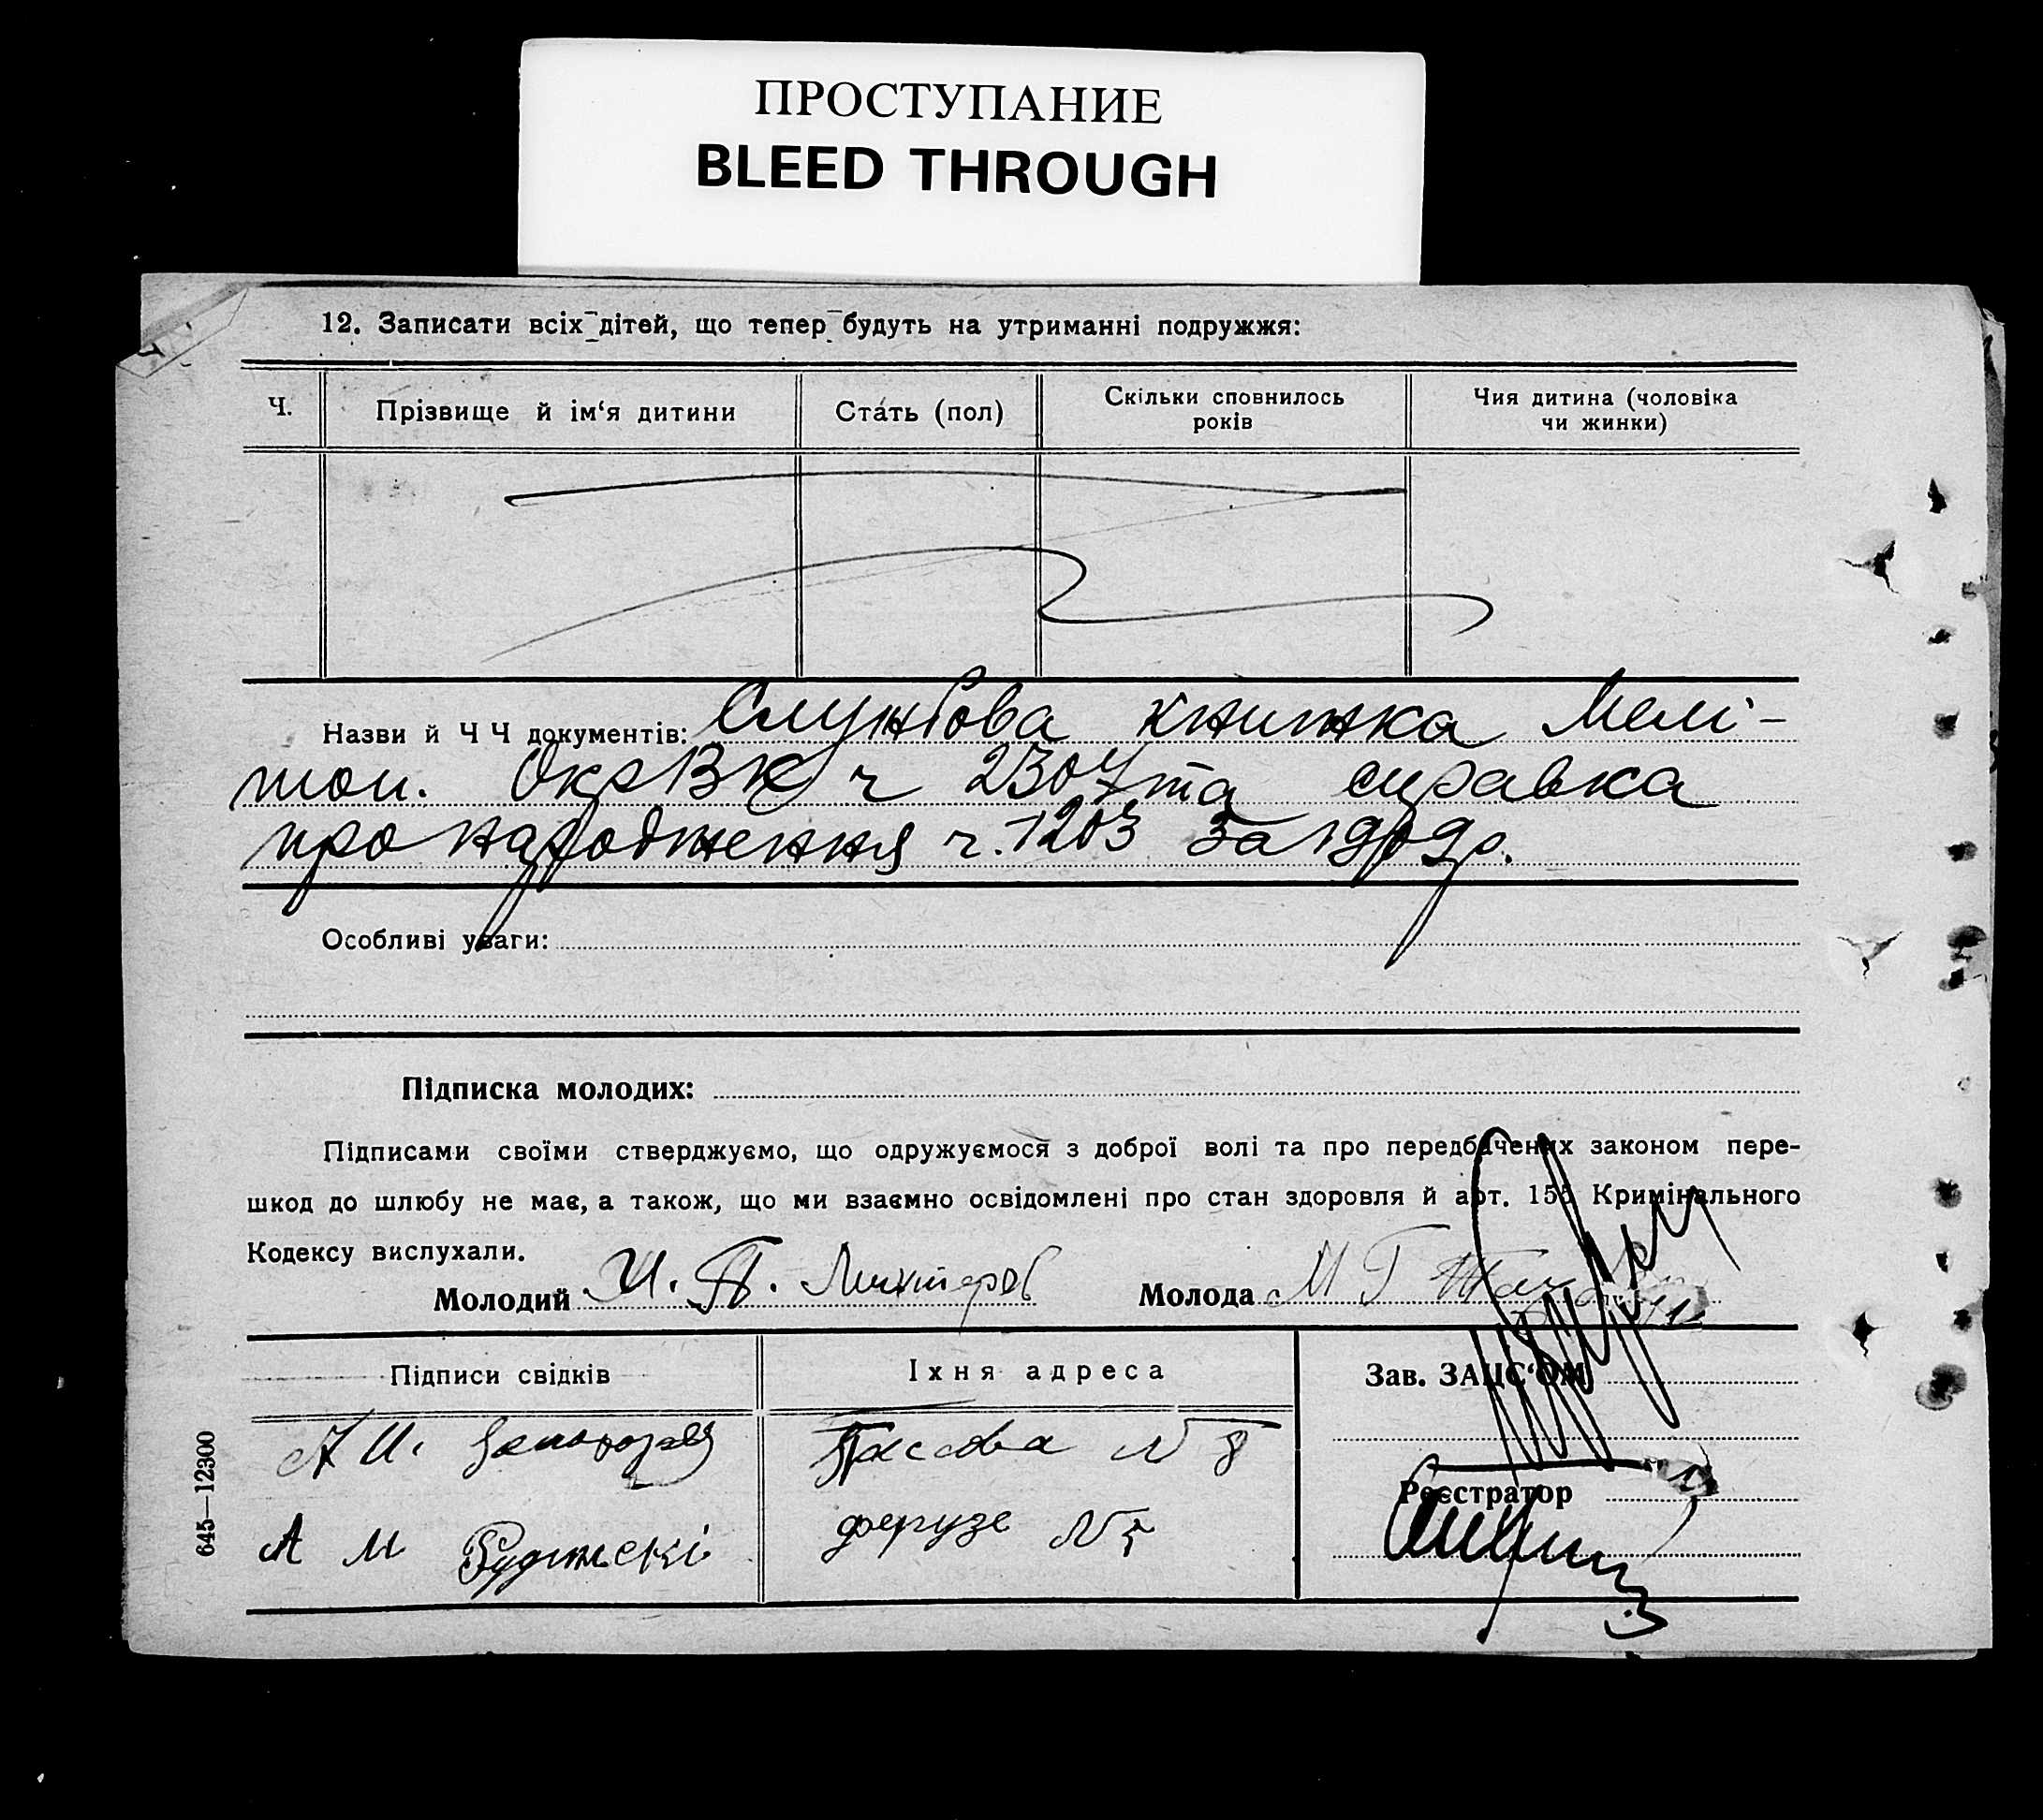 ПРОСТУПАНИЕ
BLEED THROUGH
12. Записати всіх дітей, що тепер будуть на утриманні подружжя:
Ч.
Прізвище й ім‘я дитини
Стать (пол)
Скільки сповнилось
років
Чия дитина (чоловіка
чи жинки)
Назви й Ч Ч документів: Службова книжка Мелі-
топ. ОкрВК ч 2304 та справка
про народження ч. 1203 за 1909 р.
Особливі уваги:
Підписка молодих:
Підписами своїми стверджуємо, що одружуємося з доброї волі та про передбачених законом пере-
шкод до шлюбу не має, а також, що ми взаємно освідомлені про стан здоровля й арт. 155 Кримінального
Кодексу вислухали.
Молодий И. П. Лихтеров
Молода М Г
Підписи свідків
Їхня адреса
Зав. ЗАЦС‘ОМ
А И.
№ 8
Реєстратор
А М
фрунзе № 5
645—12300